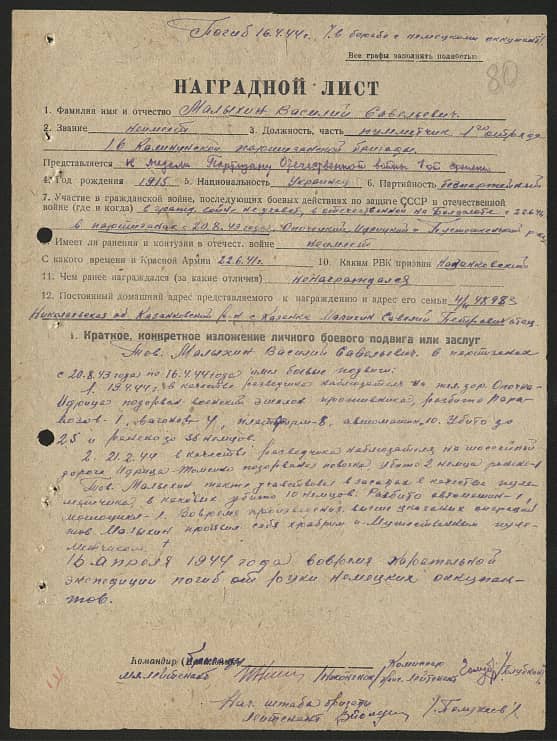 Погиб 16.4.44г. в борьбе с немецкими
Все графы заполнять полностью
80
НАГРАДНОЙ ЛИСТ
1. Фамилия имя и отчество Малыхин Василий Савельевич.
2. Звание неимеет 3. Должность, часть пулеметчик 1го отряда
16 Калининской партизанской бригады
Представляется к медали Партизану Отечественной войны 1ой степени
4. Год рождения 1915 5. Национальность Украинец 6. Партийность беспартийный
7. Участие в гражданской войне, последующих боевых действиях по защите СССР и отечественной
войне (где и когда) в гражд. войне не участ, в отечественной на с 22.6.41
в партизанах с 20.8.43 года. Опочецкий Идрицкий и Пустошкинский р-н
8. Имеет ли ранения и контузии в отечест. войне неимеет
С какого времени в Красной Армии 22.6.41г 10. Каким РВК призван Казанковский
11. Чем ранее награждался (за какие отличия) ненаграждался
12. Постоянный домашний адрес представляемого к награждению и адрес его семьи
Николаевская об. Казанковский р-н с. Казанка Малыхин Савелий Петрович отец.
1. Краткое, конкретное изложение личного боевого подвига или заслуг
Тов. Малыхин Василий Савельевич. В партизанах
с 20.8.43 года по 16.4.44 года имел боевые подвиги:
1. в качестве разведчика наблюдателя на жел. дор. Опочка
Идрица подорван воинский эшелон противника, разбито паро
возов-1, вагонов 4, платформ-8, автомашин 10. Убито до
25 и ранено до 38 немцов.
2. 21.2.44 в качестве разведчика наблюдателя на шоссейной
дороге Идрица подорвана повозка убито 2 немца
Тов. Малыхин также участвовал в засадах в качестве пуле
метчика в каковых убито 10 немцов. Разбито автомашин-1,
мотоцикл-1. Вовремя проведения выше указанных операций
тов Малыхин проявил себя храбрым и мужественным пуле
метчиком.
16 Апреля 1944 года вовремя карательной
экспедиции погиб от руки немецких оккупан-
тов.
Командир бригады Комиссар
мл. лейтенант лейтенант
Нач. штаба бригады
Лейтенант